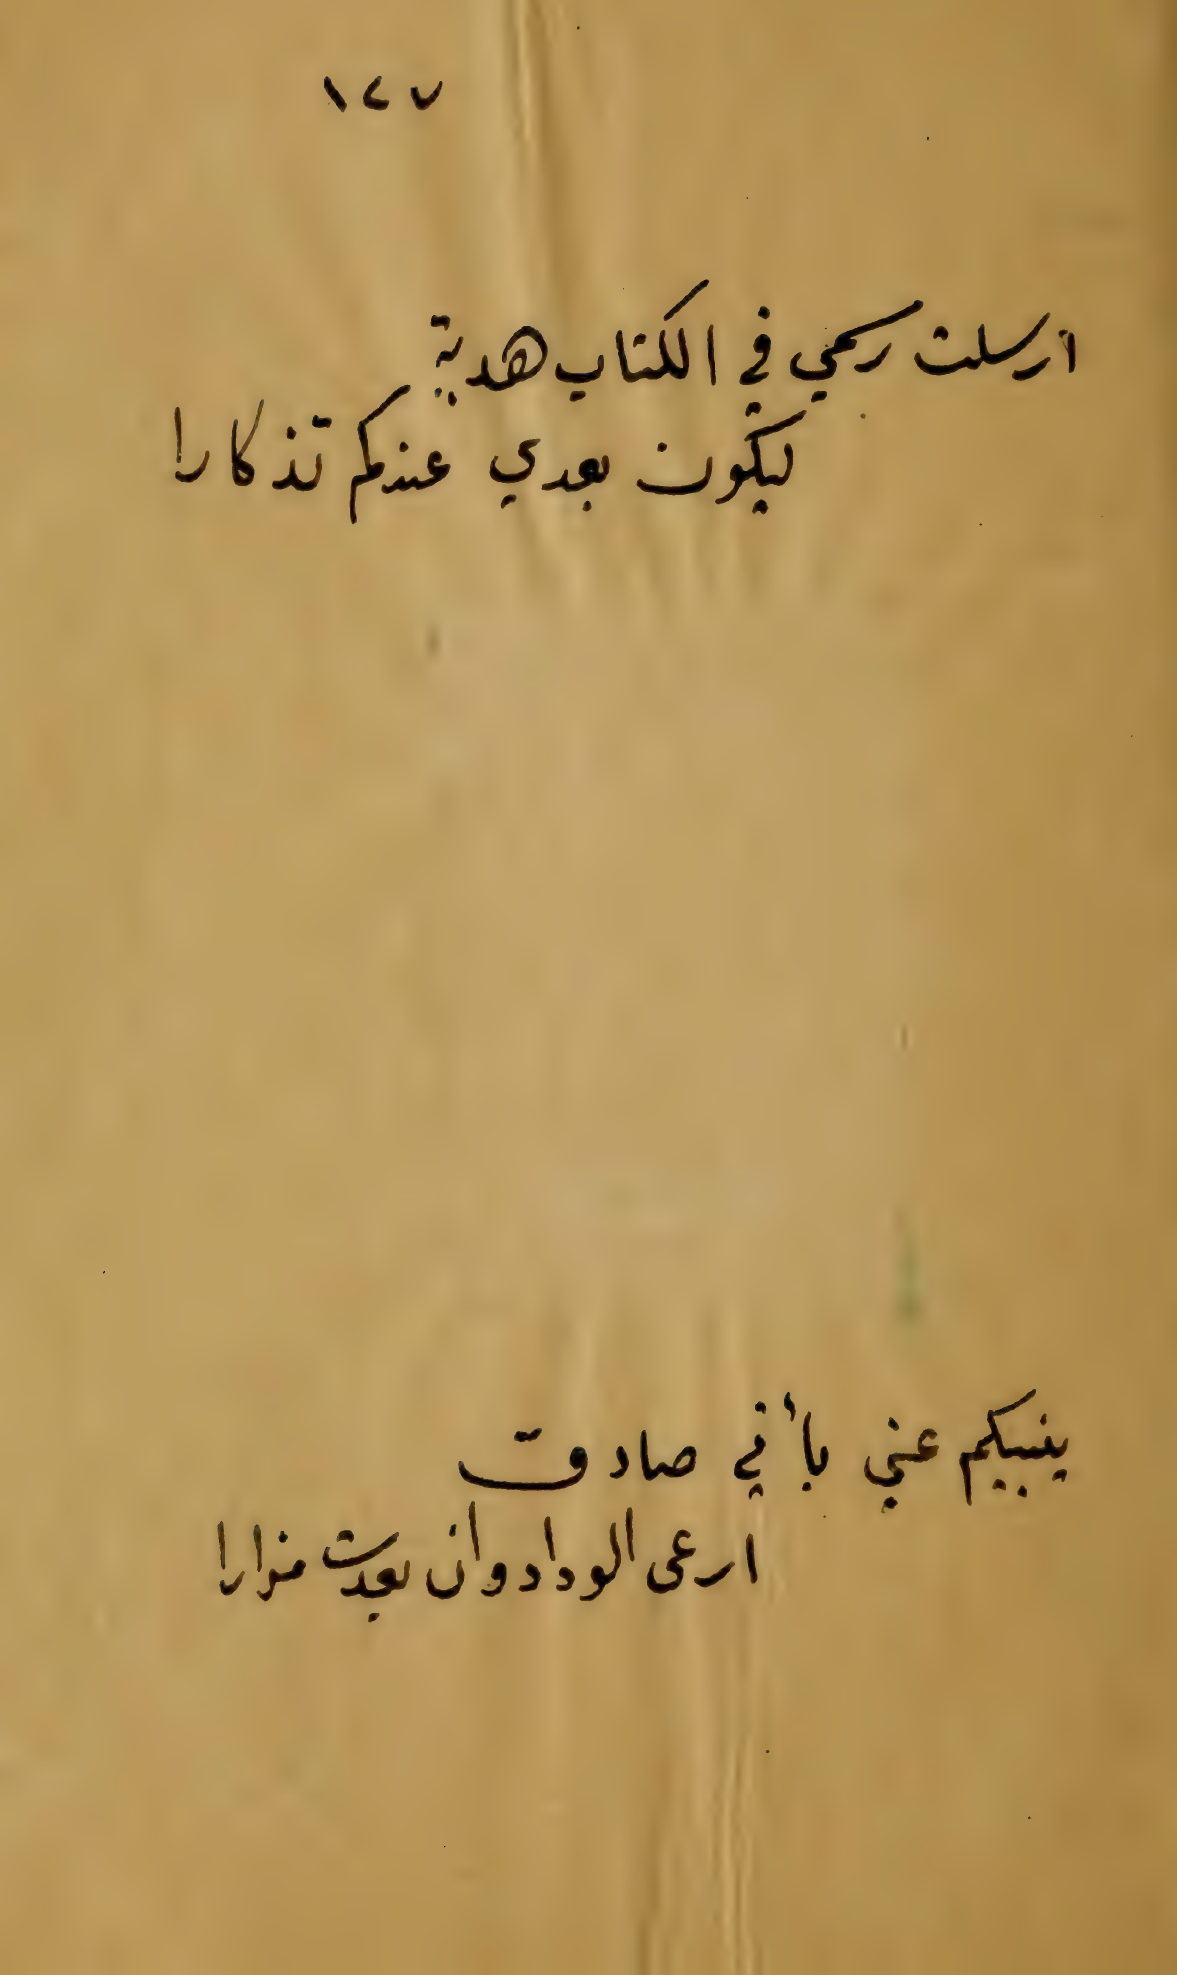 ١٤٧
ارسلت رسمي في الكتاب هدية
ليكون بعدي عندكم تذكارا
ينبيكم عني بأني صادق
ارعى الوداد وان بعدت مزارا